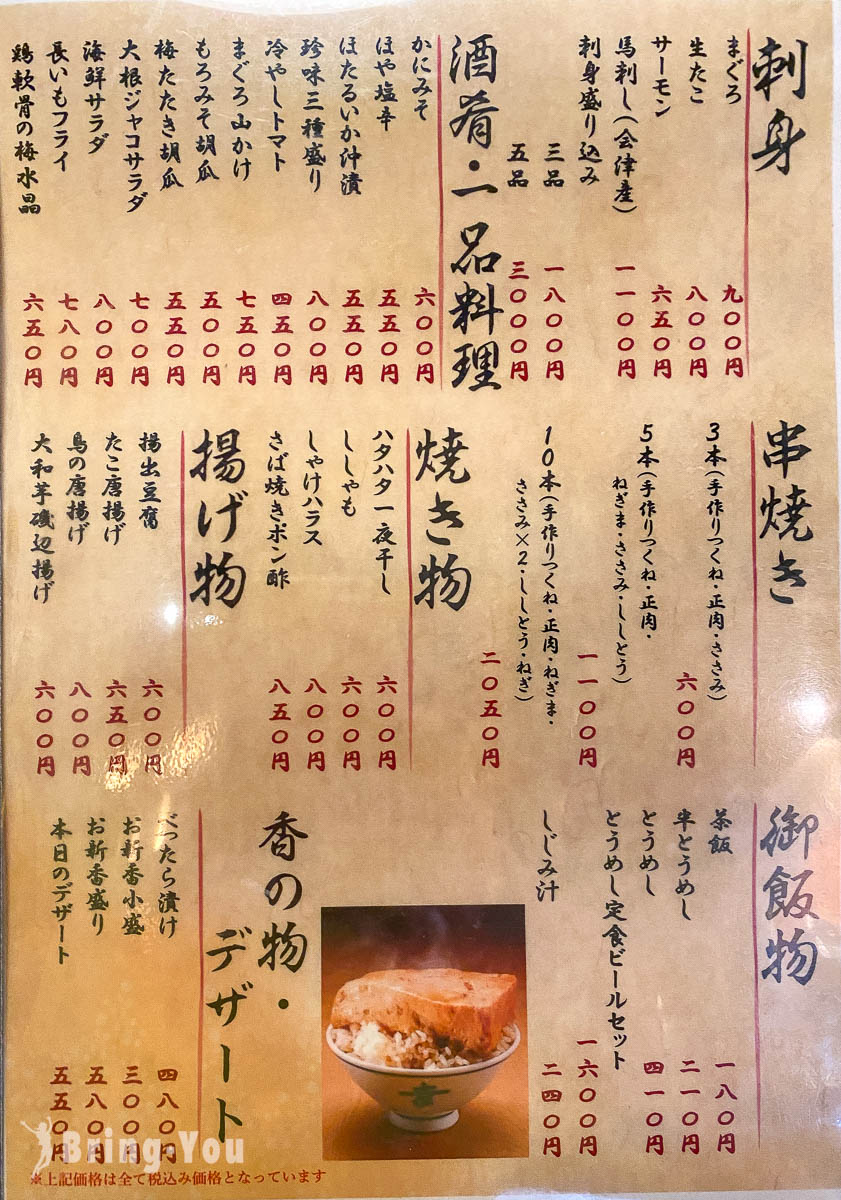 刺身
まぐろ 九〇〇円
生たこ 八〇〇円
サーモン 六五〇円
馬刺し(会津産) 一一〇〇円
刺身盛り込み
三品 一八〇〇円
五品 三〇〇〇円
酒肴・一品料理
かにみそ 六〇〇円
ほや塩辛 五五〇円
ほたるいか沖漬 五五〇円
珍味三種盛り 八〇〇円
冷やしトマト 四五〇円
まぐろ山かけ 七五〇円
もろみそ胡瓜 五〇〇円
梅たたき胡瓜 五五〇円
大根ジャコサラダ 七〇〇円
海鮮サラダ 八〇〇円
長いもフライ 七八〇円
鶏軟骨の梅水晶 六五〇円
串焼き
3本(手作りつくね・正肉・ささみ) 六〇〇円
5本(手作りつくね・正肉・
ねぎま・ささみ・ししとう) 一一〇〇円
10本(手作りつくね・正肉・ねぎま・
ささみ×2・ししとう・ねぎ) 二〇五〇円
焼き物
ハタハタ一夜干し 六〇〇円
ししゃも 六〇〇円
しゃけハラス 八〇〇円
さば焼きポン酢 八五〇円
揚げ物
揚出豆腐 六〇〇円
たこ唐揚げ 六五〇円
鳥の唐揚げ 八〇〇円
大和芋磯辺揚げ 六〇〇円
御飯物
茶飯 一八〇円
半とうめし 二一〇円
とうめし 四一〇円
とうめし定食ビールセット 一六〇〇円
しじみ汁 二四〇円
香の物・
デザート
べったら漬け 四八〇円
お新香小盛 三〇〇円
お新香盛り 五八〇円
本日のデザート 五五〇円
※上記価格は全て税込み価格となっています
Bring You